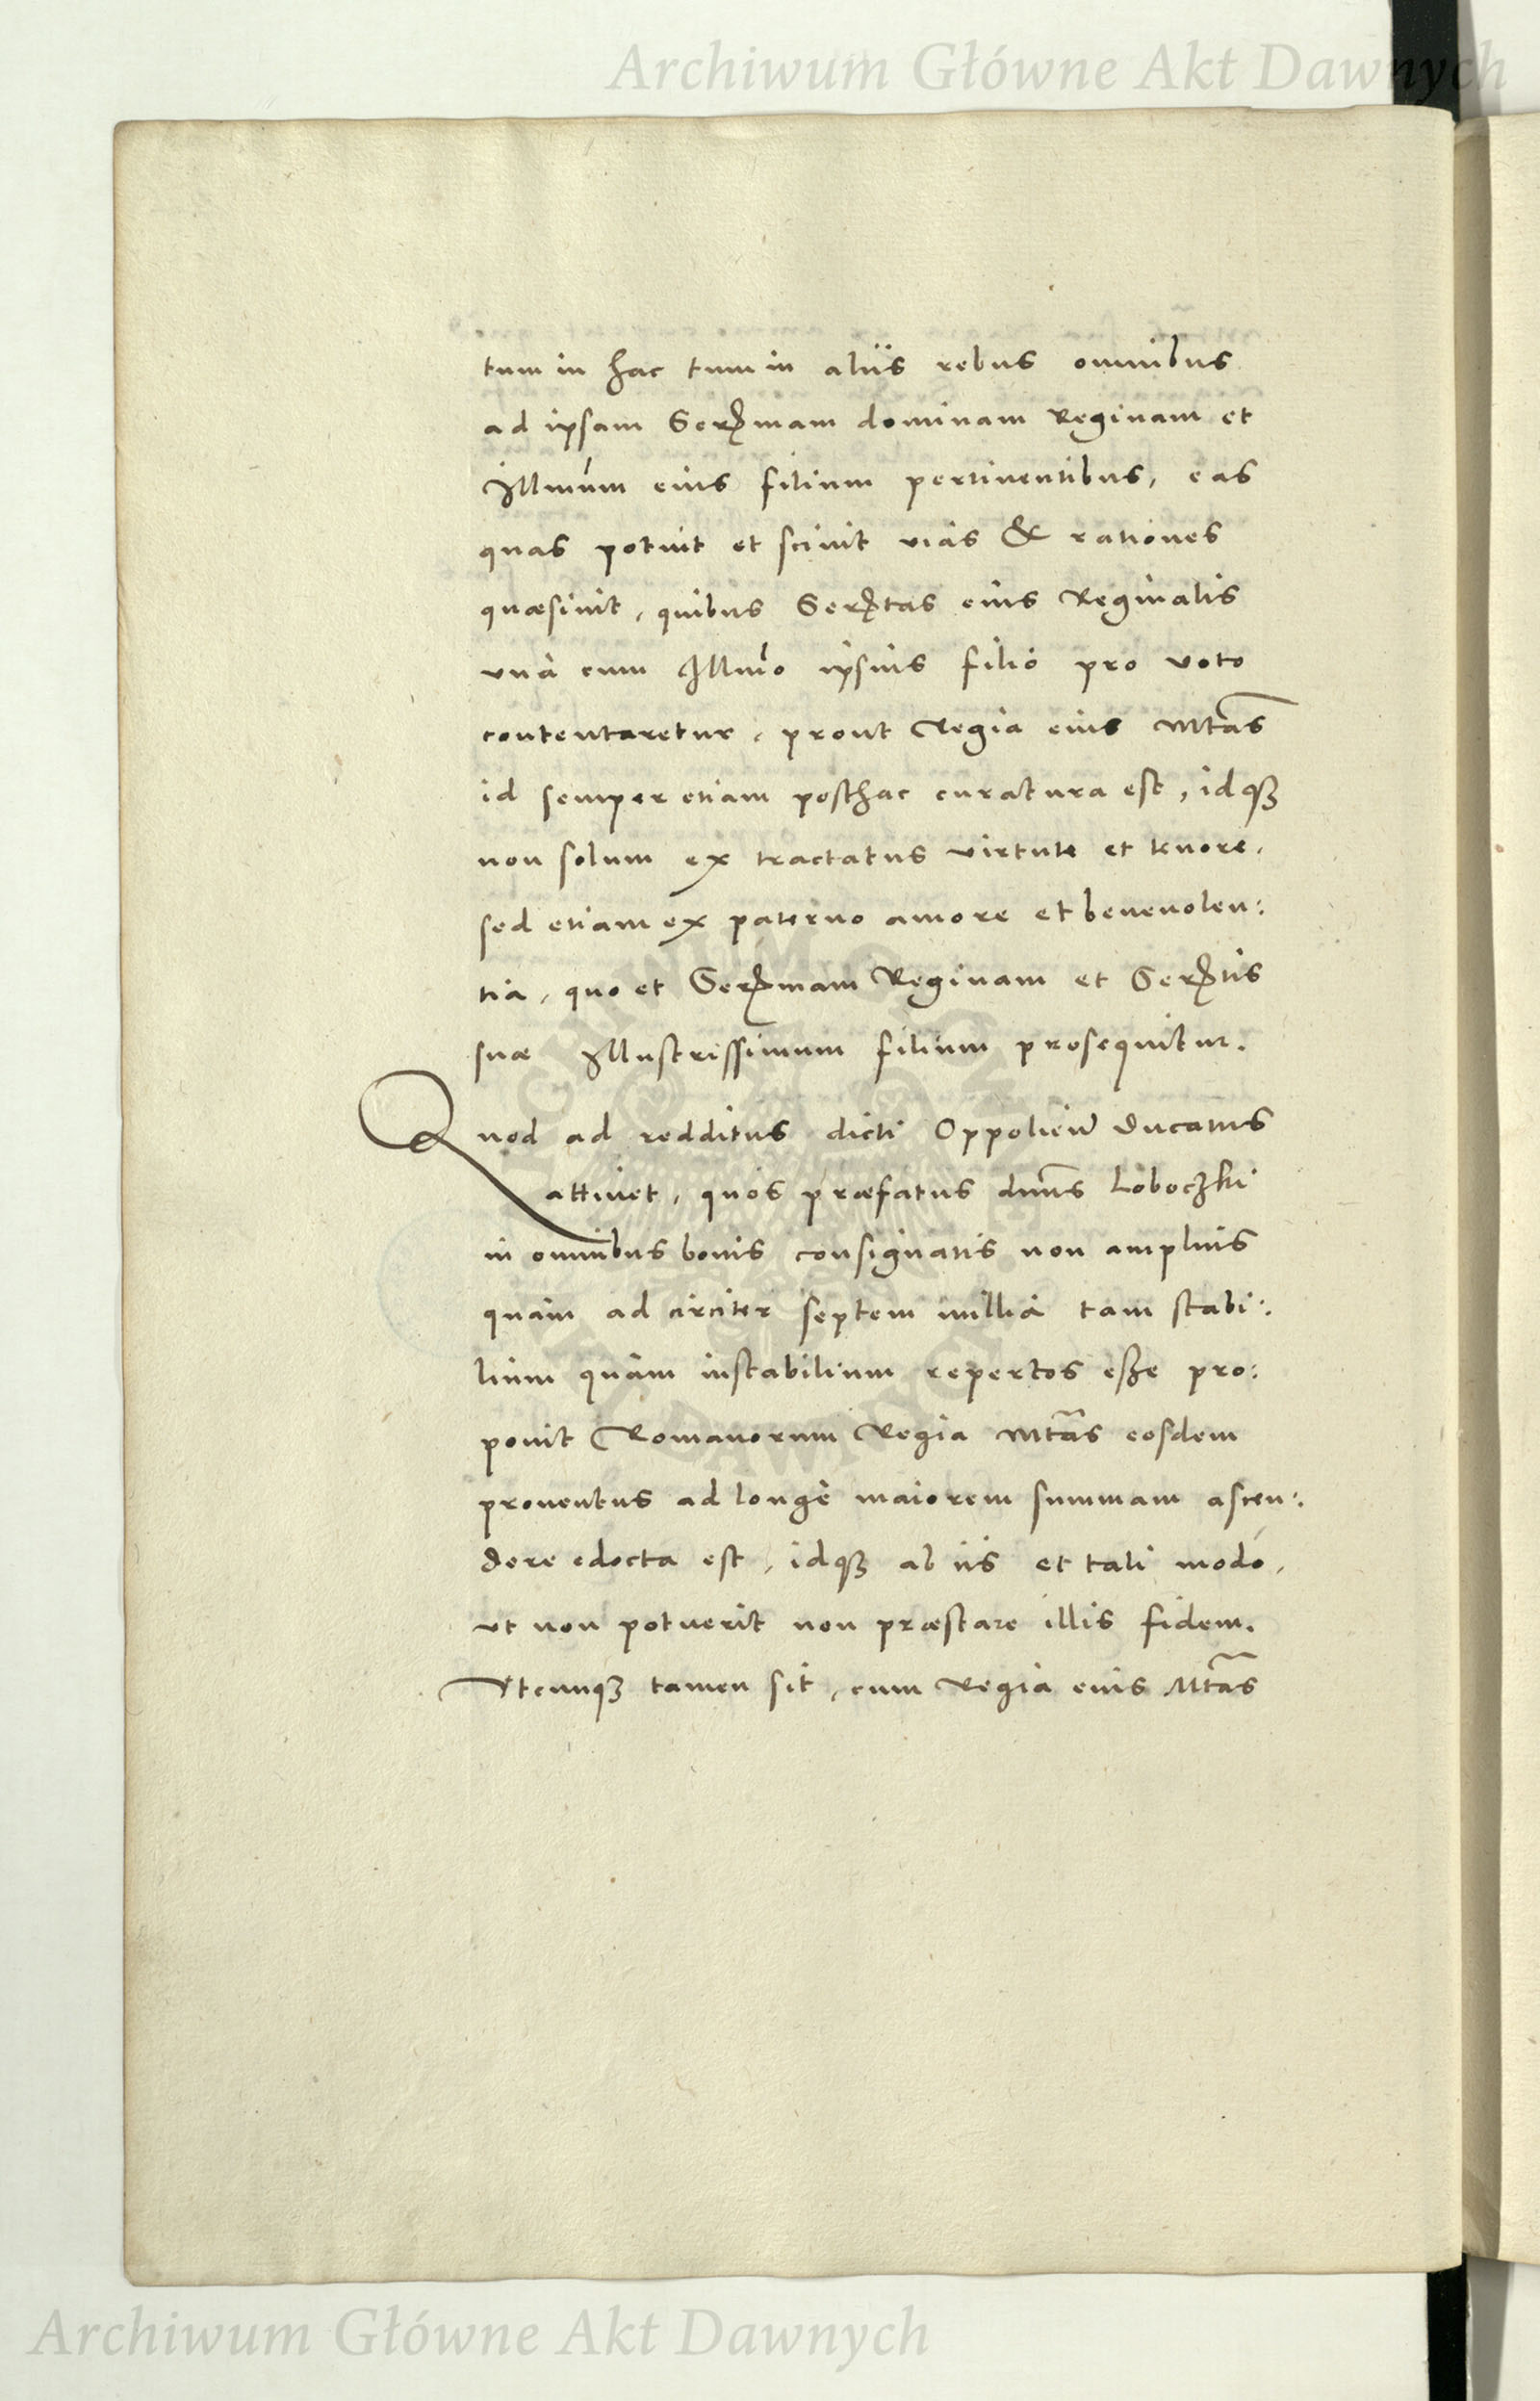 Archiwum Główne Akt Dawnych
tum in hac tum in aliis rebus omnibus
ad ipsam Sermam dominam Reginam et
Illmum eius filium pertinentibus, eas
quas potuit et scivit vias & rationes
quæsivit, quibus Sertas eius Reginalis
vnà cum Illmo ipsius filio pro voto
contentaretur, prout Regia eius Mtas
id semper etiam posthac curatura est, idq3
non solum ex tractatus virtute et tenore,
sed etiam ex paterno amore et beneuolen:
tia, quo et Sermam Reginam et Sertis
suæ Illustrissimum filium prosequitur.
Quod ad redditus dicti Oppolien Ducatus
attinet, quos præfatus dnus Loboczki
in omnibus bonis consignatis non amplius
quàm ad circiter septem millia tam stabi:
lium quàm instabilium repertos eße pro:
ponit Romanorum Regia Mtas eosdem
prouentus ad longè maiorem summam ascen:
dere edocta est, idq3 ab iis et tali modo,
vt non potuerit non præstare illis fidem.
Vtcunq3 tamen sit, cum Regia eius Mtas
Archiwum Główne Akt Dawnych